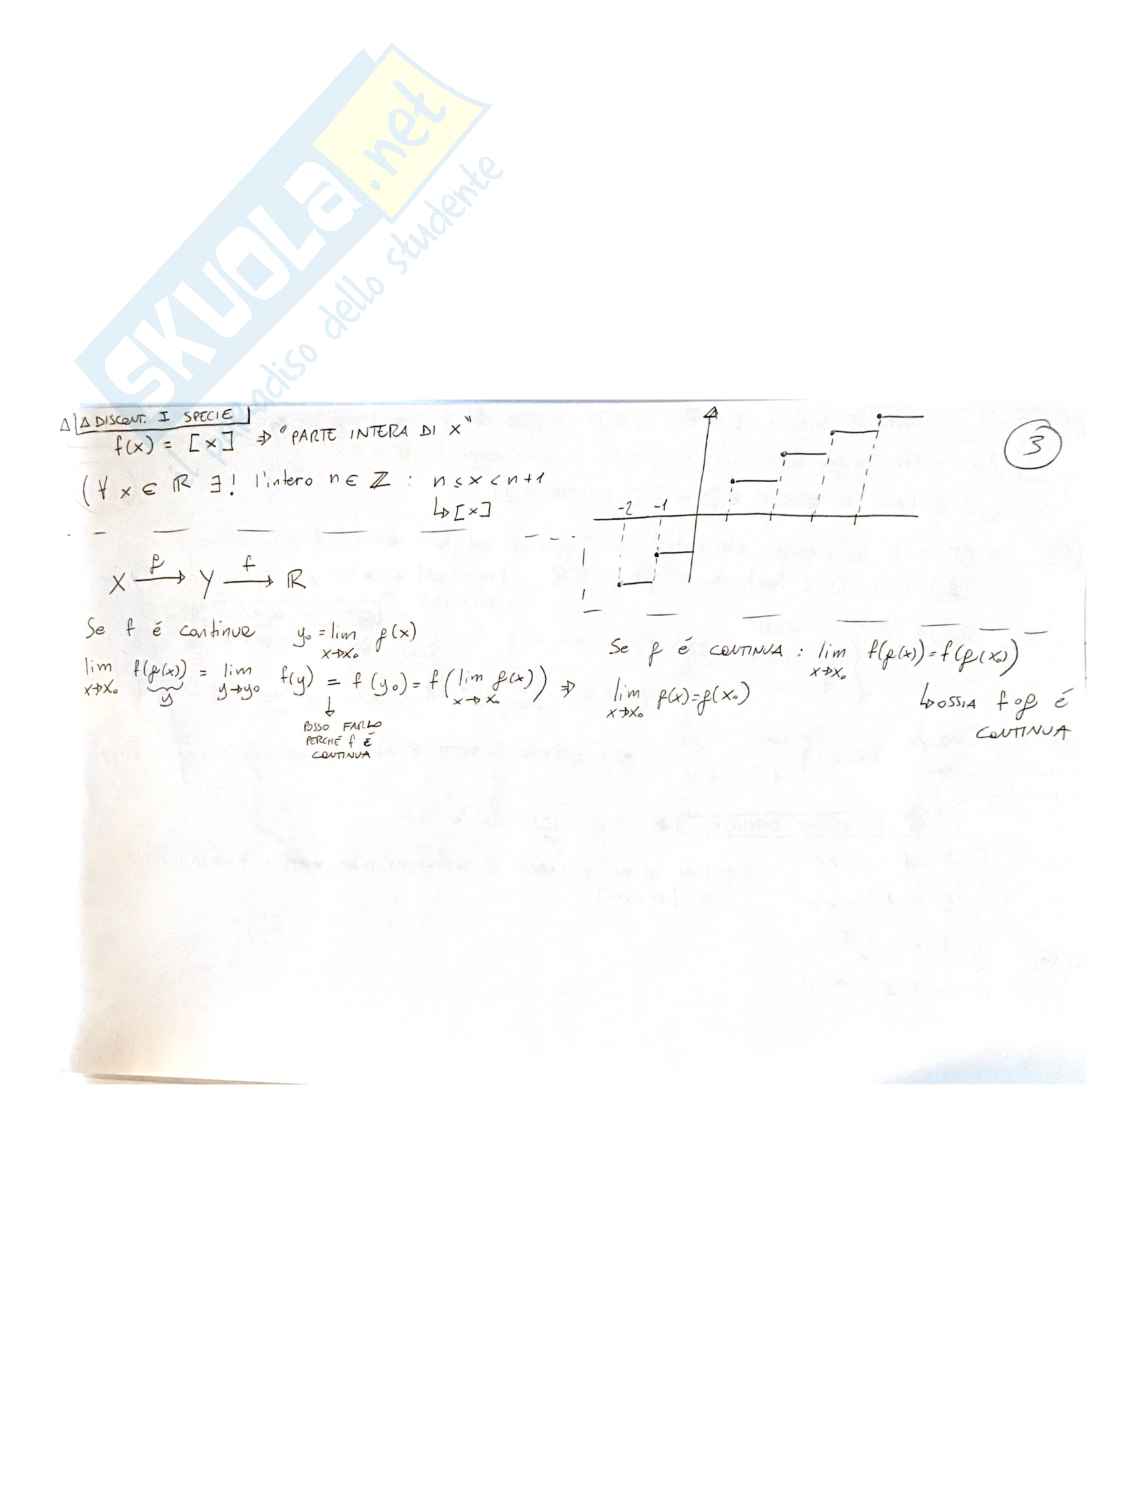 SKUOLA.net
il paradiso dello studente
Δ DISCONT. I SPECIE
f(x) = [x] ⇒ "PARTE INTERA DI X"
(∀ x ∈ ℝ ∃! l'intero n ∈ ℤ : n ≤ x < n+1
↳ [x]
-2 -1
3
X —ρ→ Y —f→ ℝ
Se f é continua y₀ = lim ρ(x)
x→x₀
lim f(ρ(x)) = lim f(y) = f(y₀) = f(lim ρ(x)) ⇒
x→x₀ y y→y₀ x→x₀
POSSO FARLO
PERCHÉ f É
CONTINUA
Se ρ é CONTINUA : lim f(ρ(x)) = f(ρ(x₀))
x→x₀
lim ρ(x) = ρ(x₀)
x→x₀
↳ OSSIA f∘ρ É
CONTINUA